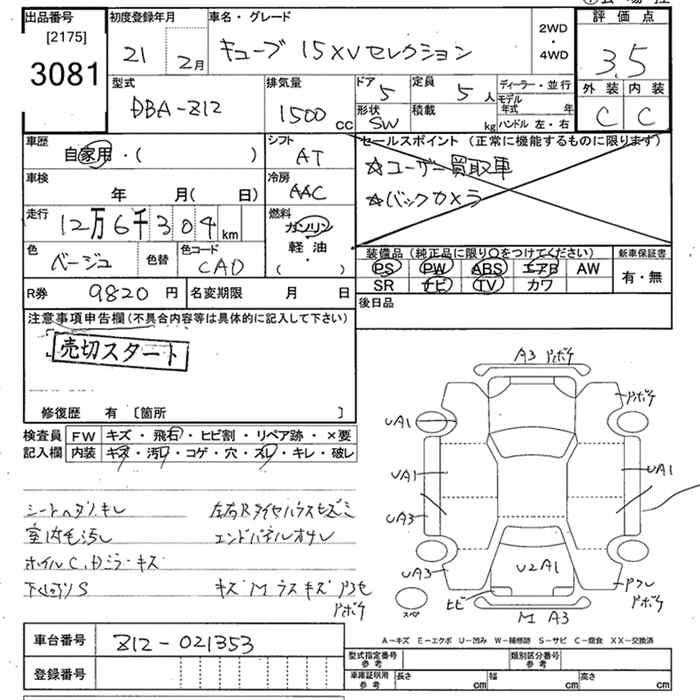 出品番号
[2175]
3081
初度登録年月
21 2月
車名・グレード
キューブ 15XVセレクション
2WD
・
4WD
評価点
3.5
外装 内装
C C
型式
DBA-Z12
排気量
1500 cc
ドア
5
定員
5人
形状
SW
積載
kg
ディーラー・並行
モデル年式 年
ハンドル 左・右
車歴
自家用・( )
シフト
AT
セールスポイント (正常に機能するものに限ります)
☆ユーザー買取車
☆バックカメラ
車検
年 月( 日)
冷房
AAC
走行
12万6千304km
燃料
ガソリン
軽油
( ・ )
色
ベージュ
色替
色コード
CAD
装備品(純正品に限り○をつけてください)
PS PW ABS エアB AW
SR ナビ TV カワ
新車保証書
有・無
R券 9820円
名変期限 月 日
後日品
注意事項申告欄(不具合内容等は具体的に記入して下さい)
売切スタート
修復歴 有 〔箇所 〕
検査員
記入欄
FW キズ・飛石・ヒビ割・リペア跡・×要
内装 キズ・汚れ・コゲ・穴・スレ・キレ・破レ
シートヘタリ、キレ
室内毛汚し
ホイルC、Dミラーキズ
下廻りS
左右Rタイヤハウスヒズミ
エンドパネルオサレ
キズ M ラスキズ
A3
UA1
UA1
UA3
UA1
UA3
U2A1
ヒビ
M A3
スペ
A-キズ E-エクボ U-凹み W-補修跡 S-サビ C-腐食 XX-交換済
車台番号
Z12-021353
登録番号
型式指定番号
参考
類別区分番号
参考
車庫証明用
参考
長さ cm
幅 cm
高さ cm